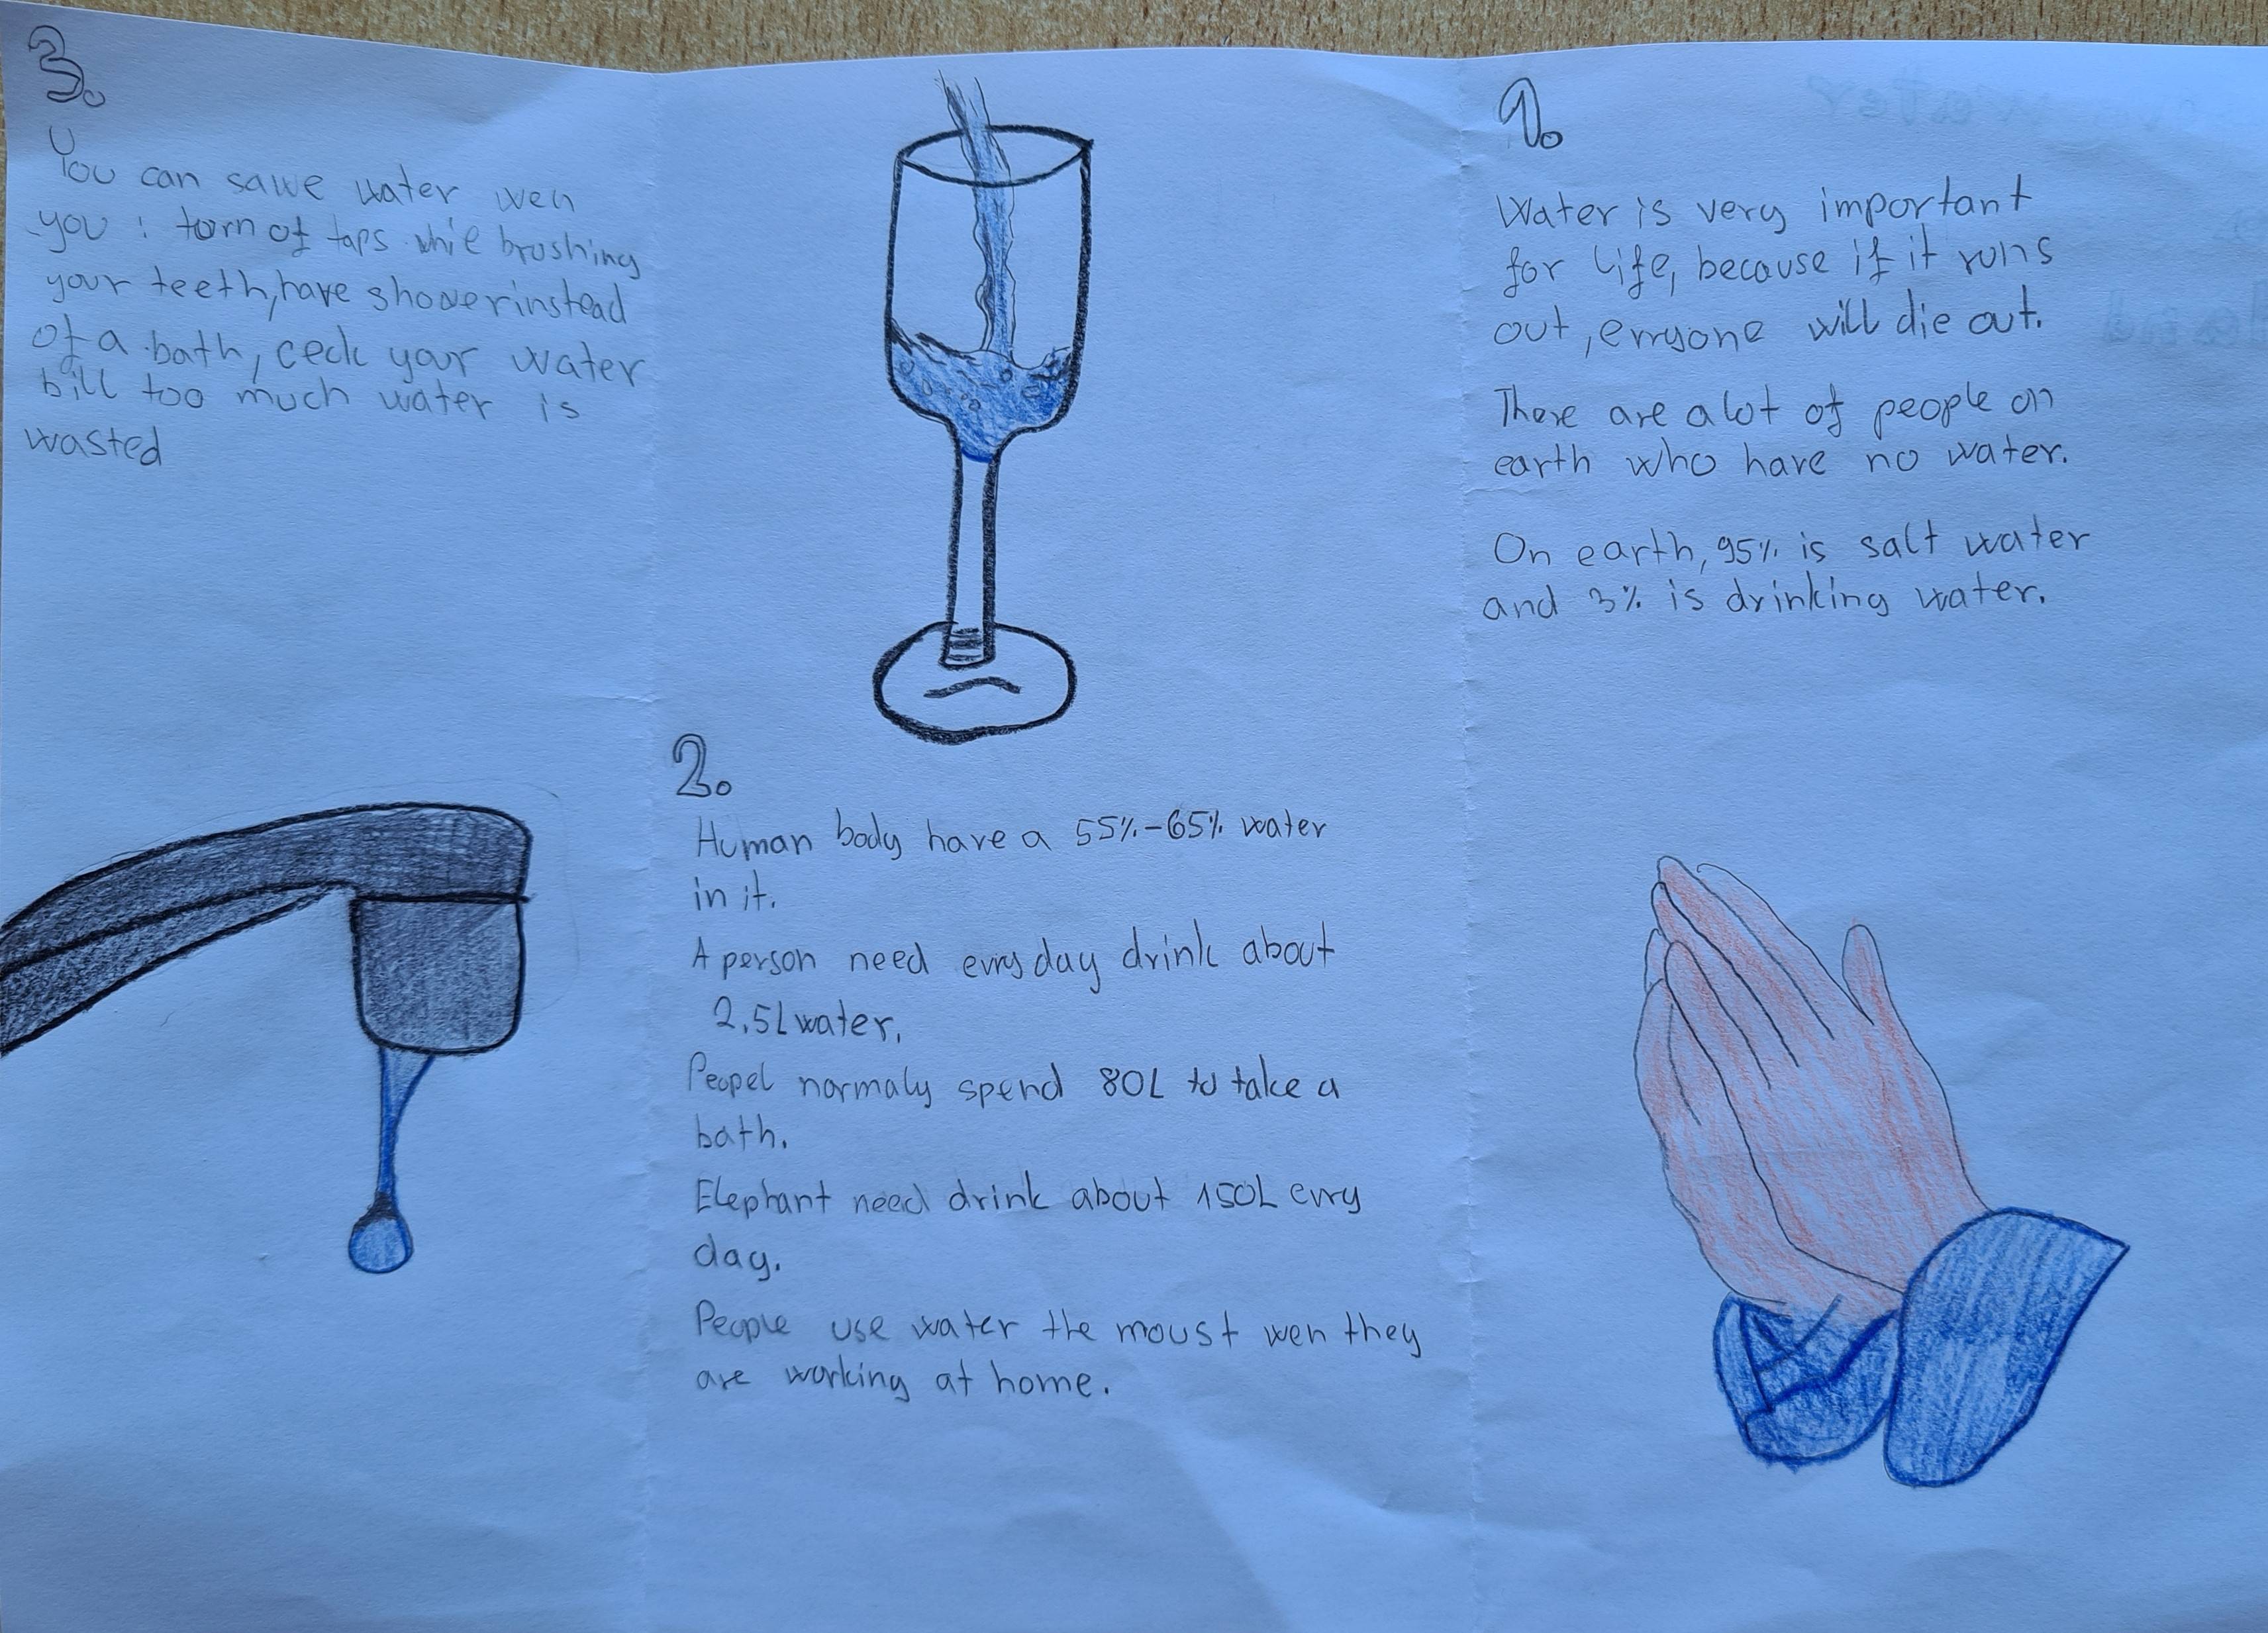 1.
Water is very important
for life, because if it runs
out, enryone will die out.
There are a lot of people on
earth who have no water.
On earth, 95% is salt water
and 3% is drinking water.
2.
Human body have a 55%-65% water
in it.
A person need evryday drink about
2.5L water.
Peopel normaly spend 80L to take a
bath.
Elephant need drink about 150L evry
day.
People use water the moust wen they
are working at home.
3.
You can sawe water wen
you : torn of taps while brushing
your teeth, have shower instead
of a bath, ceck your water
bill too much water is
wasted